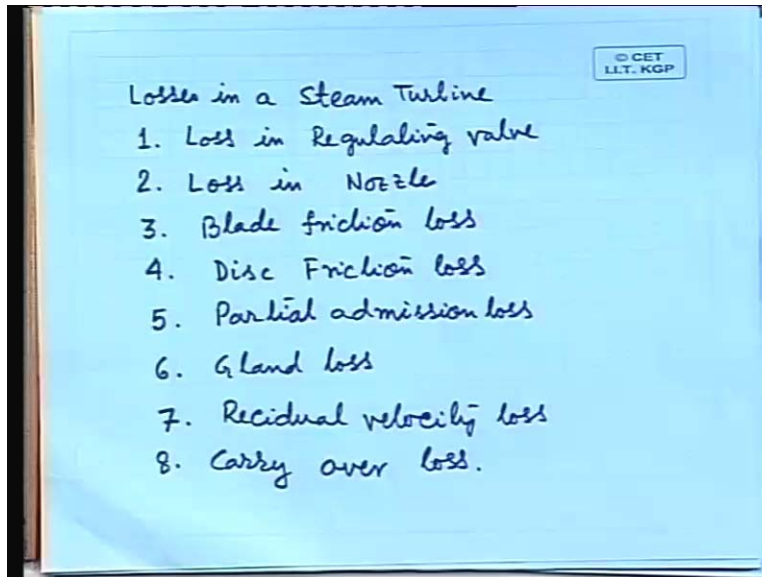 © CET
I.I.T. KGP
Losses in a Steam Turbine
1. Loss in Regulating valve
2. Loss in Nozzle
3. Blade friction loss
4. Disc Friction loss
5. Partial admission loss
6. Gland loss
7. Recidual velocity loss
8. Carry over loss.